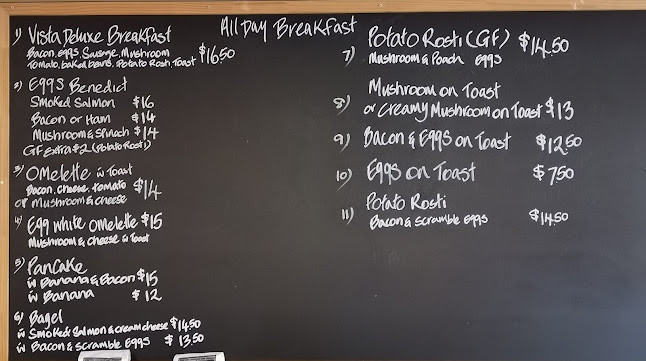 All Day Breakfast
1) Vista Deluxe Breakfast
Bacon, eggs, Sausage, Mushroom
Tomato, baked beans, Potato Rosti, Toast $16.50
2) Eggs Benedict
Smoked Salmon $16
Bacon or Ham $14
Mushroom & Spinach $14
GF Extra $2 (Potato Rosti)
3) Omelette w Toast
Bacon, cheese, tomato $14
or Mushroom & cheese
4) Egg white Omelette $15
Mushroom & cheese w Toast
5) Pancake
w Banana & Bacon $15
w Banana $12
6) Bagel
w Smoked Salmon & cream cheese $14.50
w Bacon & Scramble Eggs $13.50
7) Potato Rosti (GF) $14.50
Mushroom & Poach eggs
8) Mushroom on Toast
or Creamy Mushroom on Toast $13
9) Bacon & Eggs on Toast $12.50
10) Eggs on Toast $7.50
11) Potato Rosti
Bacon & Scramble Eggs $14.50